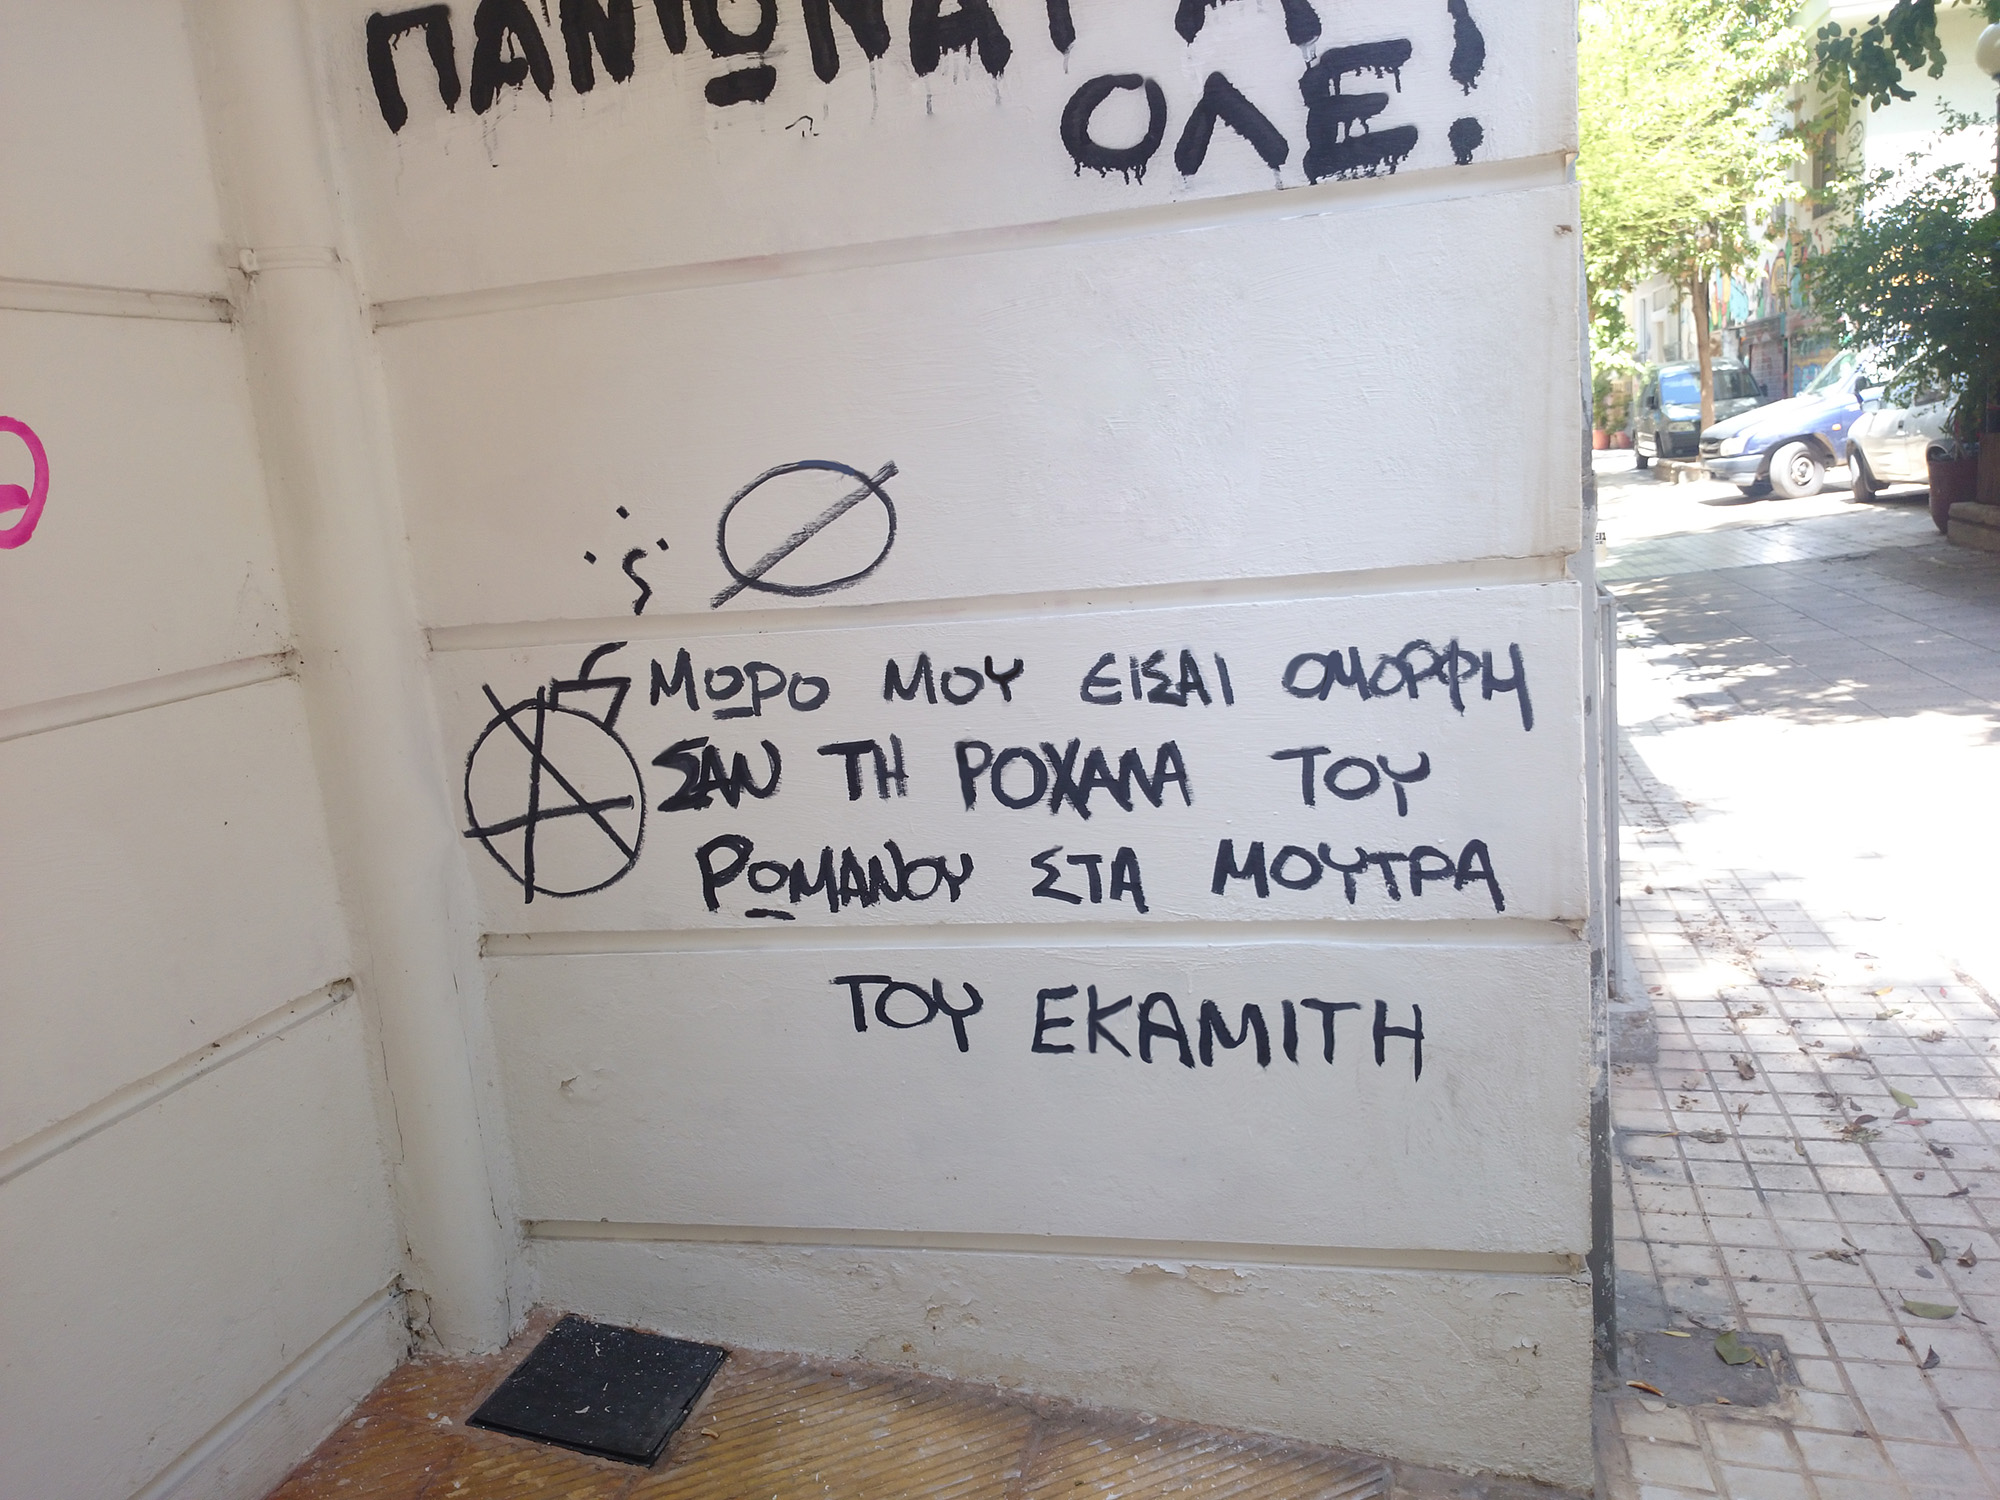 ΠΑΝΙΩΝΑΡΑ!
ΟΛΕ
ΜΩΡΟ ΜΟΥ ΕΙΣΑΙ ΟΜΟΡΦΗ
ΣΑΝ ΤΗ ΡΟΧΑΛΑ ΤΟΥ
ΡΩΜΑΝΟΥ ΣΤΑ ΜΟΥΤΡΑ
ΤΟΥ ΕΚΑΜΙΤΗ